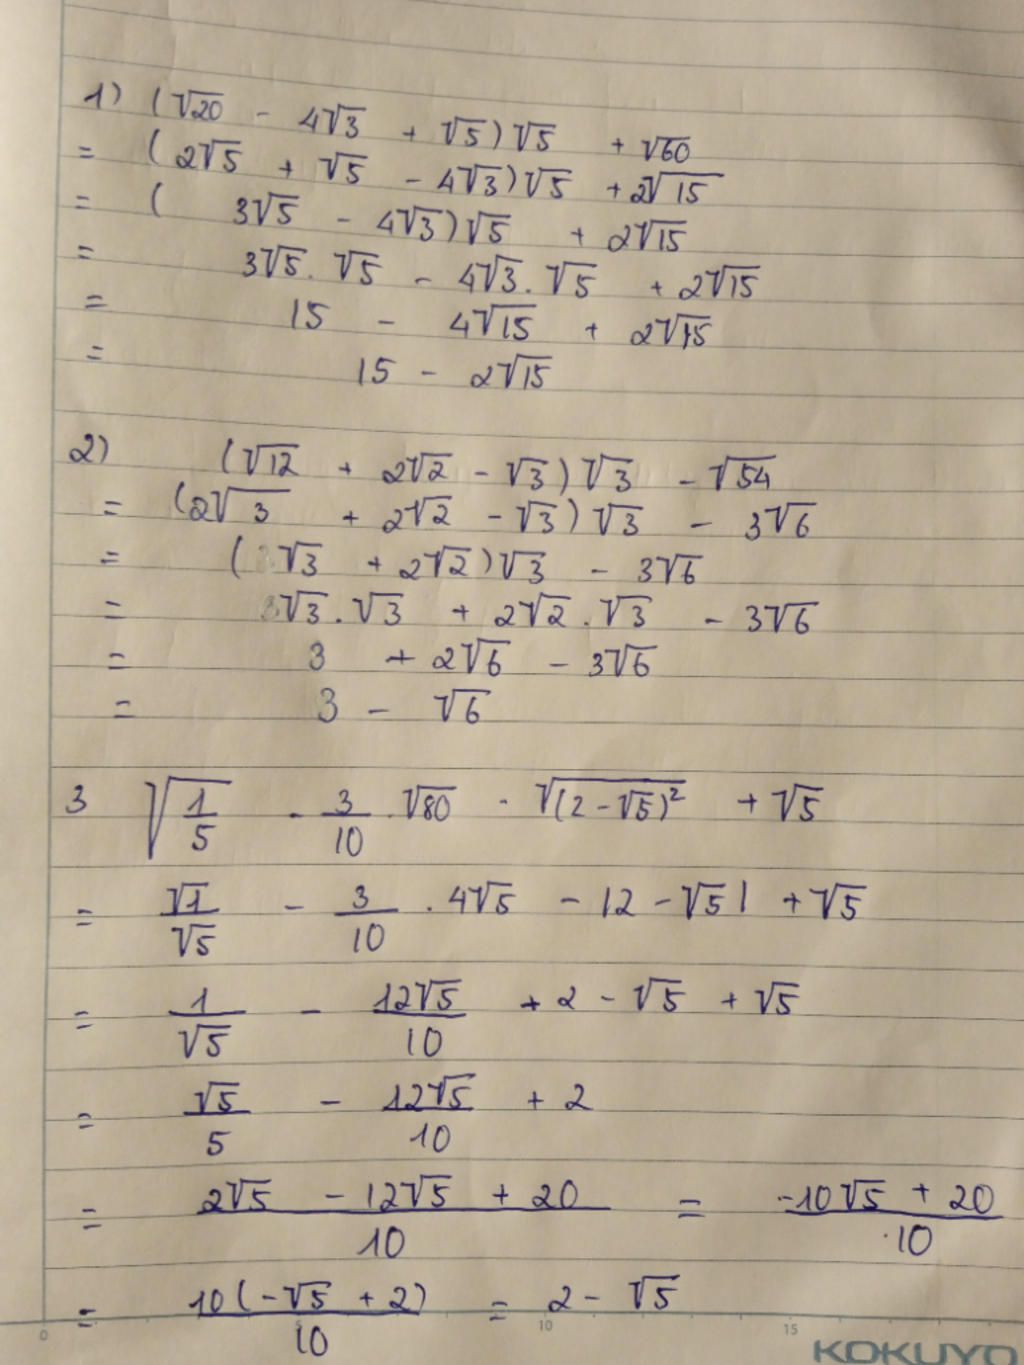 1) (√20 - 4√3 + √5)√5 + √60
= (2√5 + √5 - 4√3)√5 + 2√15
= ( 3√5 - 4√3)√5 + 2√15
= 3√5 . √5 - 4√3 . √5 + 2√15
= 15 - 4√15 + 2√15
= 15 - 2√15
2) (√12 + 2√2 - √3)√3 - √54
= (2√3 + 2√2 - √3)√3 - 3√6
= ( √3 + 2√2)√3 - 3√6
= √3 . √3 + 2√2 . √3 - 3√6
= 3 + 2√6 - 3√6
= 3 - √6
3 √(1/5) - 3/10 . √80 - √((2 - √5)²) + √5
= √1/√5 - 3/10 . 4√5 - |2 - √5| + √5
= 1/√5 - 12√5/10 + 2 - √5 + √5
= √5/5 - 12√5/10 + 2
= (2√5 - 12√5 + 20)/10 = (-10√5 + 20)/10
= 10(-√5 + 2)/10 = 2 - √5
0 5 10 15
KOKUYO